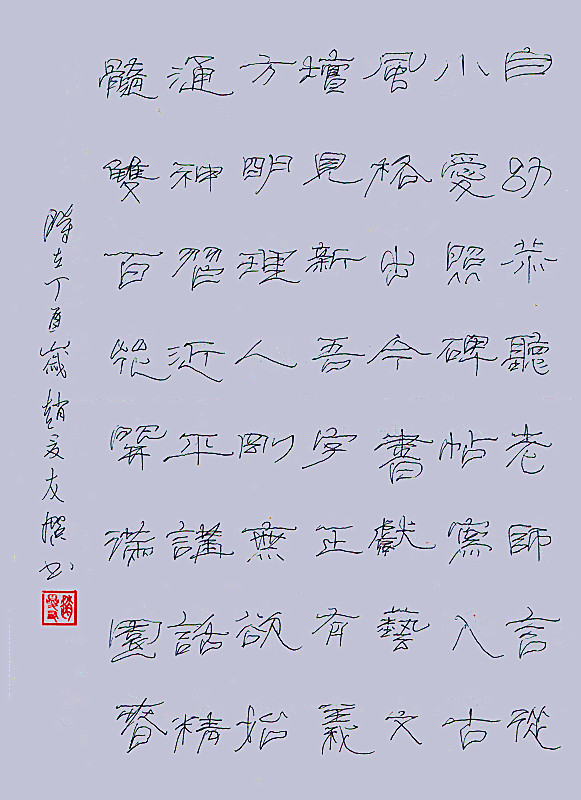 自幼恭聽老師言從
小愛照碑帖寫入古
風格出今書獻藝文
壇見新吾字正有義
方明理人剛無欲始
通神習近平講話精
髓雙百花開滿園春
時在丁酉歲趙友書